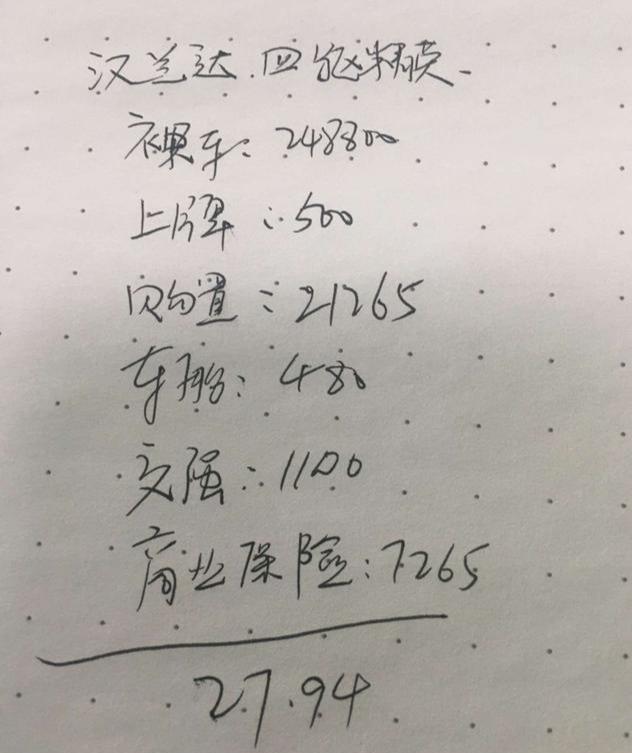 汉兰达.四驱精英.
裸车:248800
上牌:500
购置:21265
车船:480
交强:1100
商业保险:7265
27.94